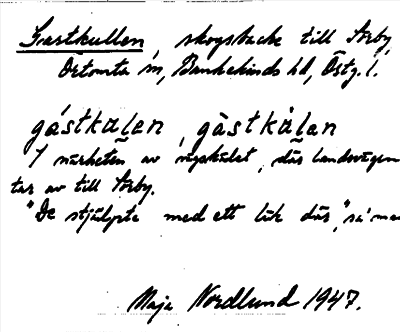 Gastkullen, skogsbacke till Sörby,
Örtomta sn, Bankekinds hd, Östg. l.
gástkälen, gàstkàlen
I närheten av vägskälet, där landsvägen
tar av till Sörby.
"De stjälpte med ett lik där," sa man
Maja Nordlund 1947.